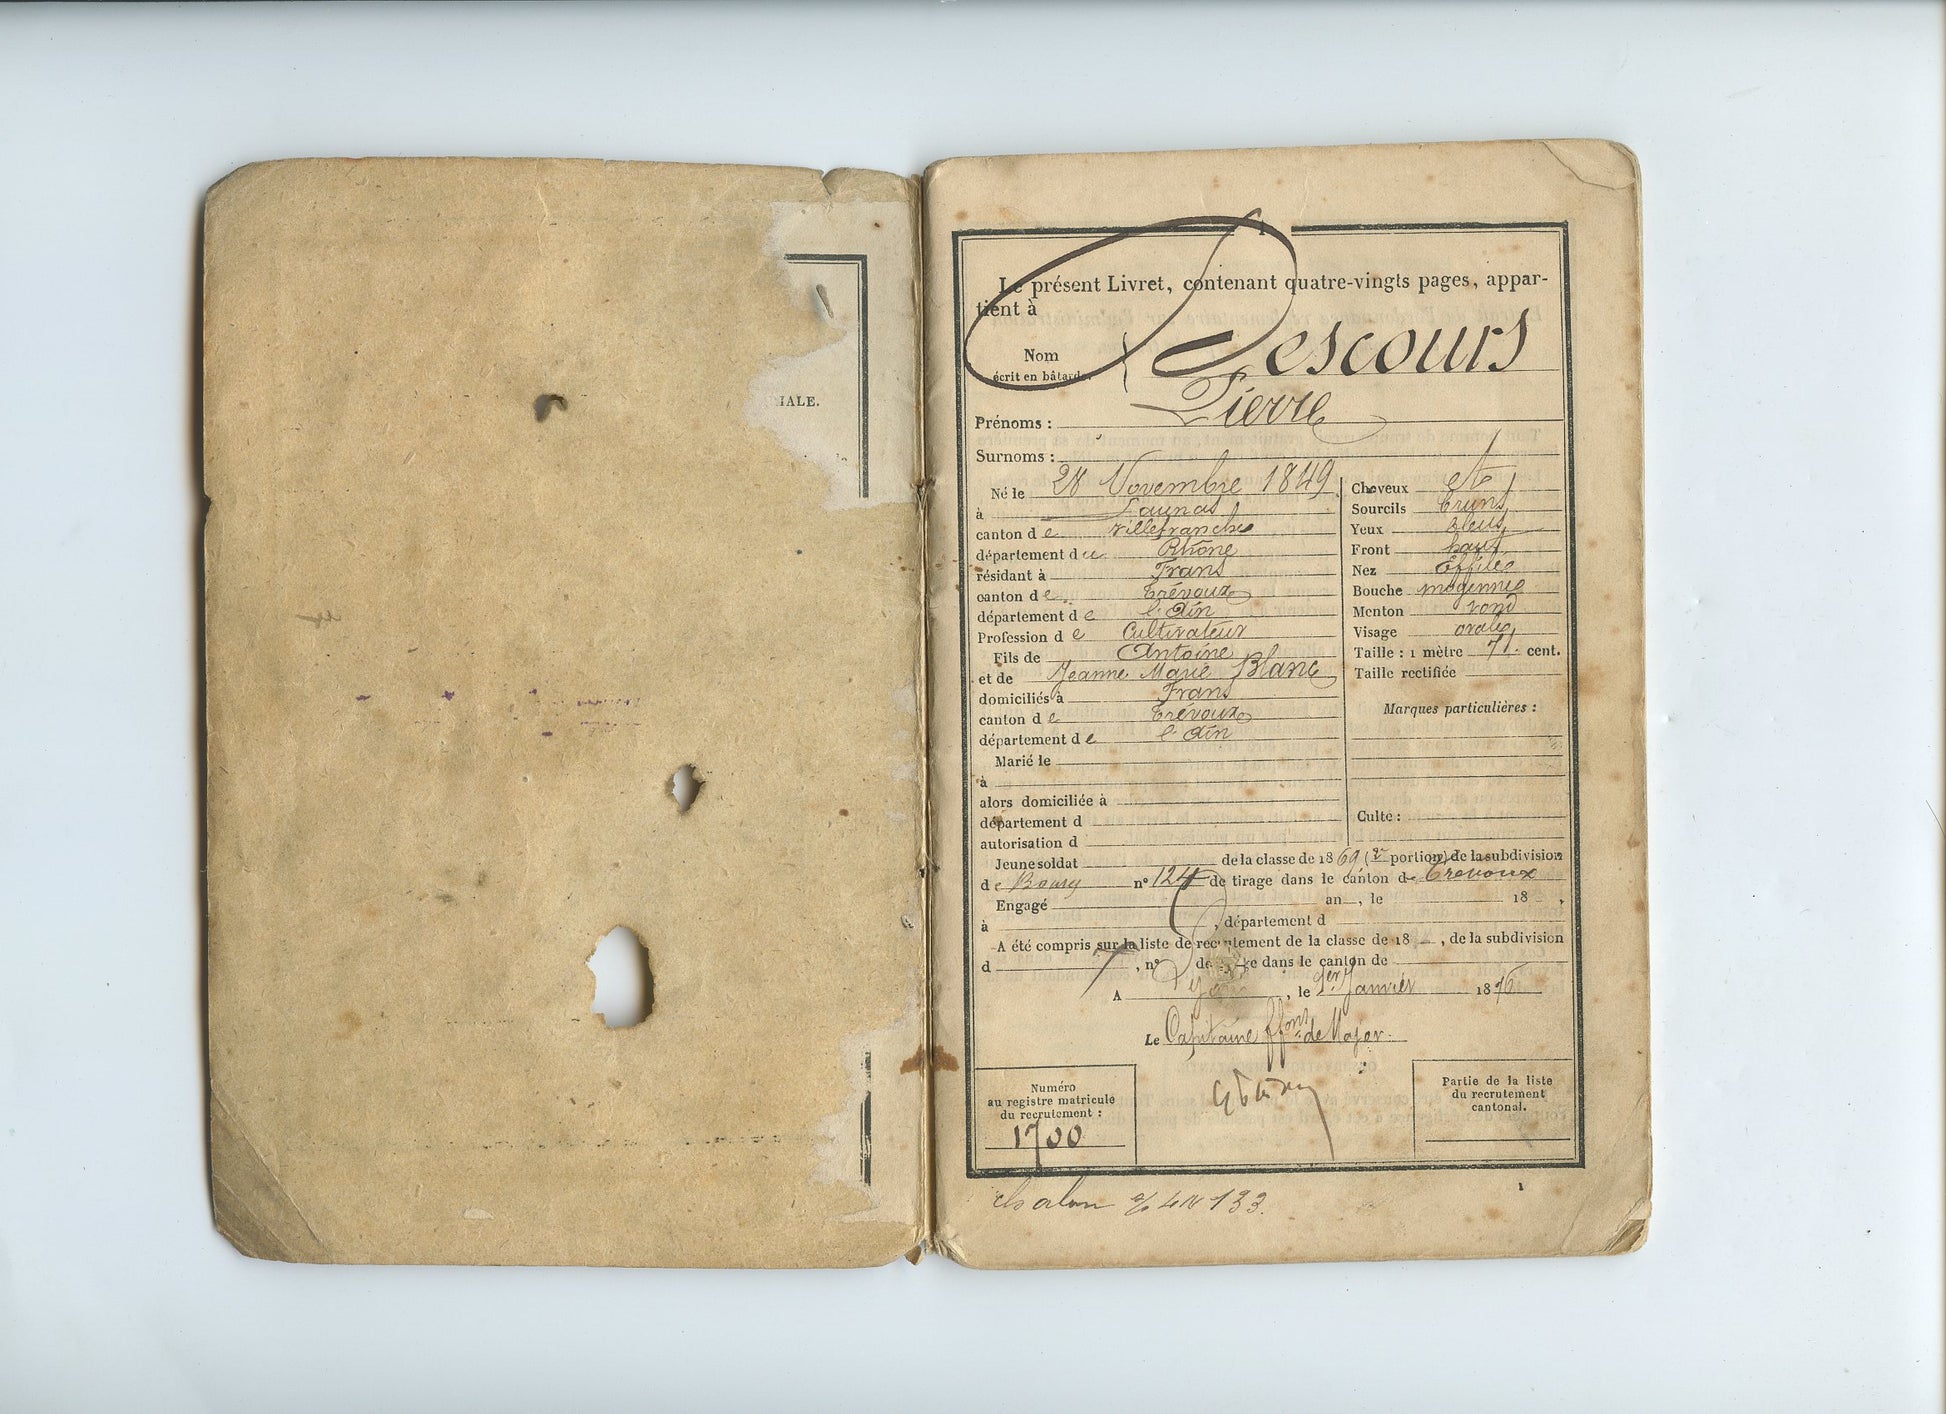 IALE.
1
Le présent Livret, contenant quatre-vingts pages, appar-
tient à
Nom
écrit en bâtarde.
Descours
Prénoms : Pierre
Surnoms :
Né le 28 Novembre 1849
à Launas
canton de Villefranche
département du Rhône
résidant à Frans
canton de Trévoux
département de l'Ain
Profession de Cultivateur
Fils de Antoine
et de Jeanne Marie Blanc
domiciliés à Frans
canton de Trévoux
département de l'Ain
Marié le
à
alors domiciliée à
département d
autorisation d
Cheveux et
Sourcils bruns
Yeux bleus
Front haut
Nez Effilé
Bouche moyenne
Menton rond
Visage ovale
Taille : 1 mètre 71 cent.
Taille rectifiée
Marques particulières :
Culte :
Jeune soldat de la classe de 1869 (2e portion) de la subdivision
de Bourg n° 124 de tirage dans le canton de Trévoux
Engagé an , le 18 ,
à , département d
A été compris sur la liste de recrutement de la classe de 18 , de la subdivision
d , n° de tirage dans le canton de
A Lyon , le 1er Janvier 1876
Le Capitaine ffons de Major.
Numéro
au registre matricule
du recrutement :
1700
Partie de la liste
du recrutement
cantonal.
1
Chalon s/s 133.